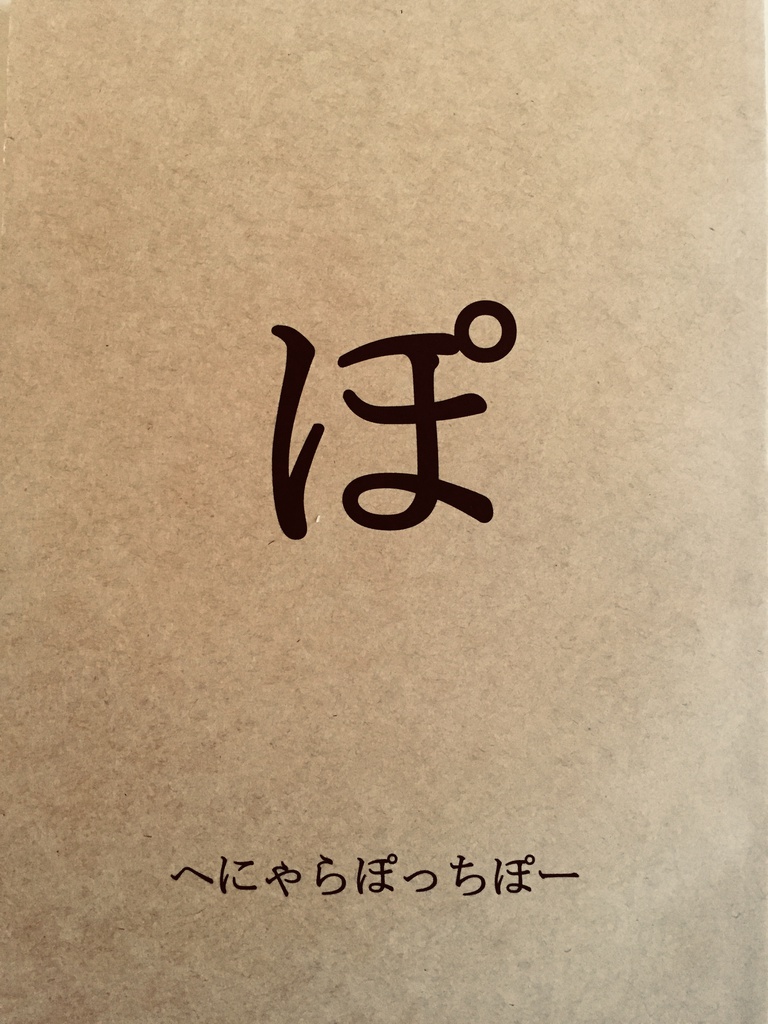 ぽ
へにゃらぽっちぽー